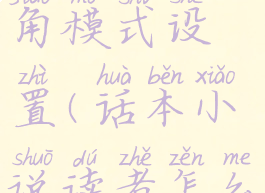 角模式设
zhì huà běn xiǎo
置(话本小
shuō dú zhě zěn me
说读者怎么